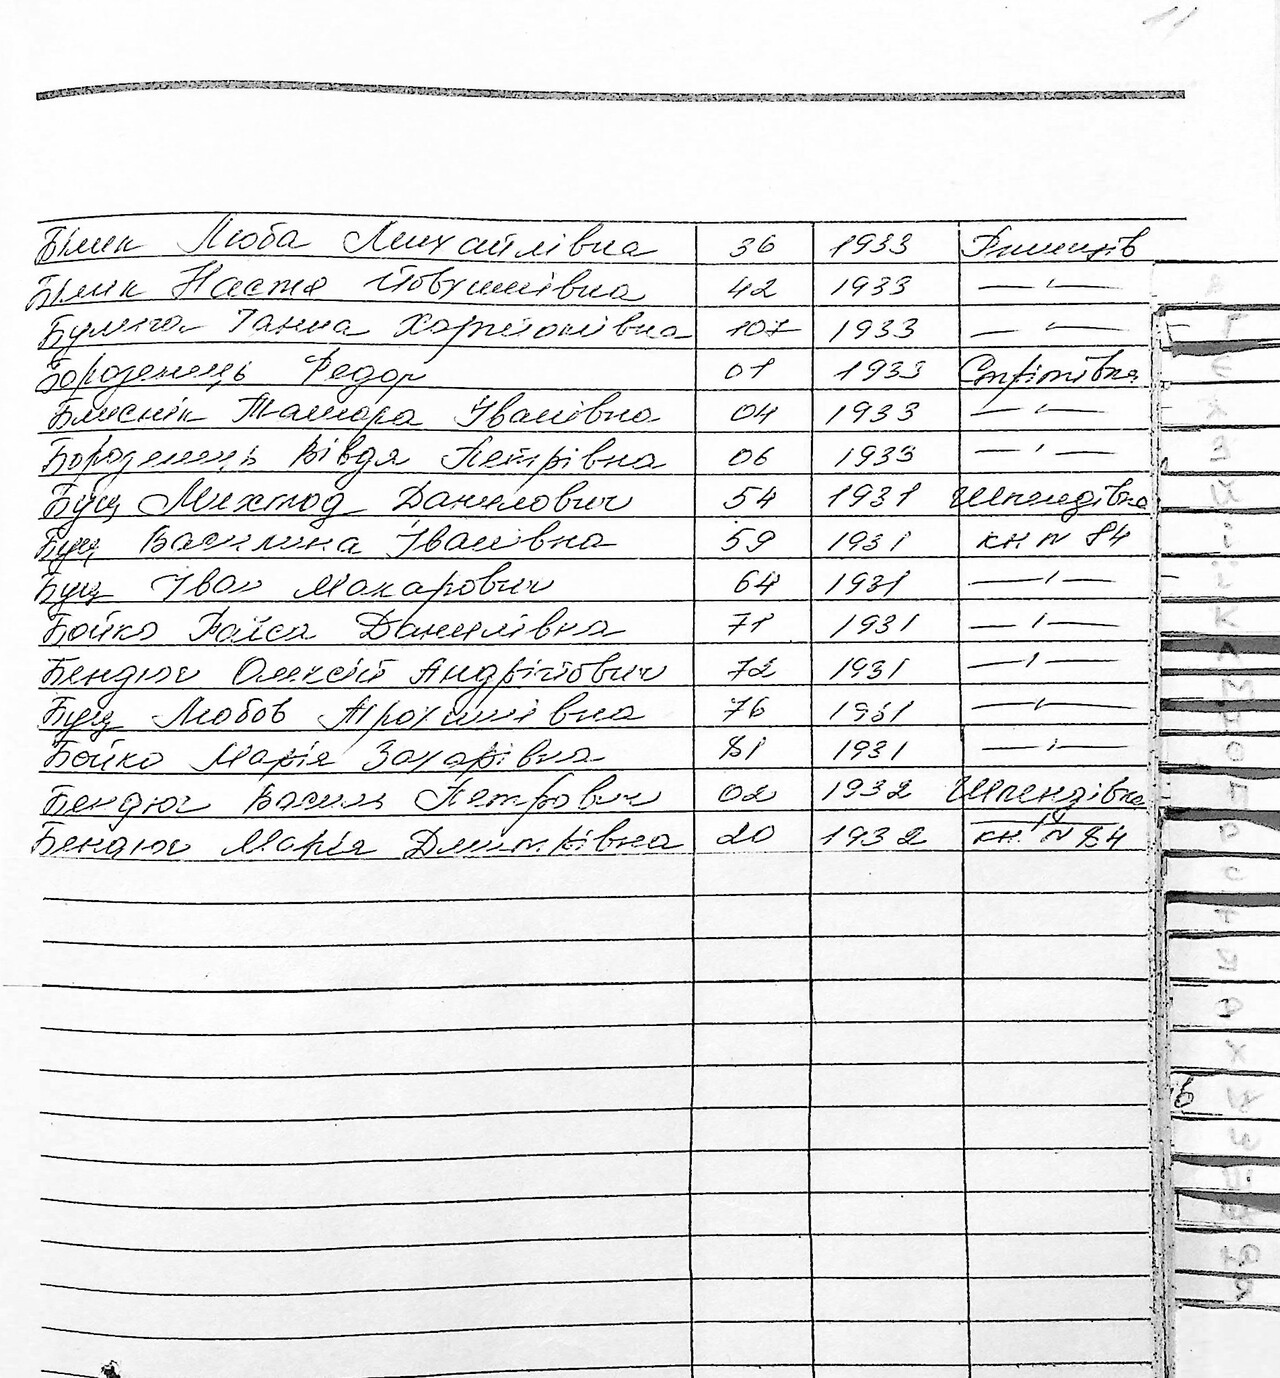 11
Білик Люба Михайлівна 36 1933 Ржищів
Білик Настя Йовхимівна 42 1933 — " —
Булига Ганна Харитонівна 107 1933 — " —
Бороденець Федор 01 1933
Блисник Тамара Іванівна 04 1933 — " —
Бороденець Вівдя Петрівна 06 1933 — " —
Бущ Данилович 54 1931 Шпендівка
Бущ Василина Іванівна 59 1931 кн № 84
Бущ Іван Макарович 64 1931 — " —
Бойко Раїса Данилівна 71 1931 — " —
Бендюг Олексій Андрійович 72 1931 — " —
Бущ Любов Трохимівна 76 1931 — " —
Бойко Марія Захарівна 81 1931 — " —
Бендюг Василь Петрович 02 1932 Шпендівка
Бендюг Марія Дмитрівна 20 1932 кн. № 84